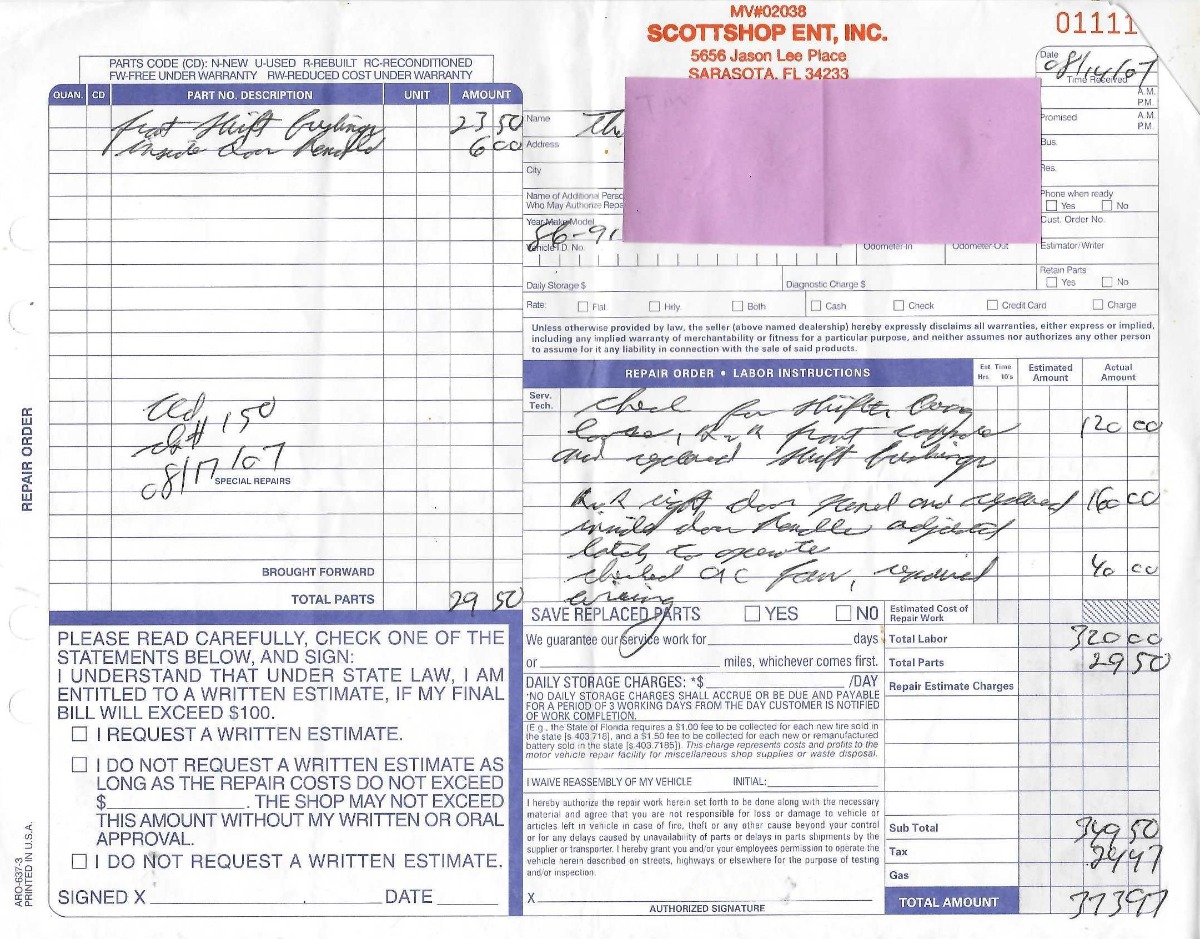 MV#02038
SCOTTSHOP ENT, INC.
5656 Jason Lee Place
SARASOTA, FL 34233
01111
PARTS CODE (CD): N-NEW U-USED R-REBUILT RC-RECONDITIONED
FW-FREE UNDER WARRANTY RW-REDUCED COST UNDER WARRANTY
QUAN. CD PART NO. DESCRIPTION UNIT AMOUNT
front shift bushings 23 50
inside door handle 6 00
cd# 150
08/17/07
SPECIAL REPAIRS
BROUGHT FORWARD
TOTAL PARTS 29 50
REPAIR ORDER
Date 08/14/07
Time Received A.M.
P.M.
Name
Promised A.M.
P.M.
Address
Bus.
City
Res.
Name of Additional
Who May Authorize
Phone when ready
Yes No
Year-Make-Model
86-91
Cust. Order No.
Vehicle I.D. No.
Odometer-In Odometer-Out Estimator/Writer
Retain Parts
Yes No
Daily Storage $ Diagnostic Charge $
Rate: Flat Hrly Both Cash Check Credit Card Charge
Unless otherwise provided by law, the seller (above named dealership) hereby expressly disclaims all warranties, either express or implied,
including any implied warranty of merchantability or fitness for a particular purpose, and neither assumes nor authorizes any other person
to assume for it any liability in connection with the sale of said products.
REPAIR ORDER • LABOR INSTRUCTIONS Est. Time Hrs. 10's Estimated Amount Actual Amount
Serv. Tech.
Check for shifter being
loose, R&R front console 120 00
and replaced shift bushings
R&R right door panel and replaced 160 00
inside door handle adjusted
latch to operate
checked A/C fan, repaired 40 00
wiring
SAVE REPLACED PARTS YES NO
Estimated Cost of Repair Work
We guarantee our service work for days
Total Labor 320 00
or miles, whichever comes first.
Total Parts 29 50
DAILY STORAGE CHARGES: *$ /DAY
Repair Estimate Charges
*NO DAILY STORAGE CHARGES SHALL ACCRUE OR BE DUE AND PAYABLE
FOR A PERIOD OF 3 WORKING DAYS FROM THE DAY CUSTOMER IS NOTIFIED
OF WORK COMPLETION.
(E.g., the State of Florida requires a $1.00 fee to be collected for each new tire sold in
the state [s.403.718], and a $1.50 fee to be collected for each new or remanufactured
battery sold in the state [s.403.7185]). This charge represents costs and profits to the
motor vehicle repair facility for miscellaneous shop supplies or waste disposal.
I WAIVE REASSEMBLY OF MY VEHICLE INITIAL:
I hereby authorize the repair work herein set forth to be done along with the necessary
material and agree that you are not responsible for loss or damage to vehicle or
articles left in vehicle in case of fire, theft or any other cause beyond your control
or for any delays caused by unavailability of parts or delays in parts shipments by the
supplier or transporter. I hereby grant you and/or your employees permission to operate the
vehicle herein described on streets, highways or elsewhere for the purpose of testing
and/or inspection.
Sub Total 349 50
Tax 24 47
Gas
X
AUTHORIZED SIGNATURE
TOTAL AMOUNT 373 97
PLEASE READ CAREFULLY, CHECK ONE OF THE
STATEMENTS BELOW, AND SIGN:
I UNDERSTAND THAT UNDER STATE LAW, I AM
ENTITLED TO A WRITTEN ESTIMATE, IF MY FINAL
BILL WILL EXCEED $100.
I REQUEST A WRITTEN ESTIMATE.
I DO NOT REQUEST A WRITTEN ESTIMATE AS
LONG AS THE REPAIR COSTS DO NOT EXCEED
$ . THE SHOP MAY NOT EXCEED
THIS AMOUNT WITHOUT MY WRITTEN OR ORAL
APPROVAL.
I DO NOT REQUEST A WRITTEN ESTIMATE.
SIGNED X DATE
ARO-637-3
PRINTED IN U.S.A.